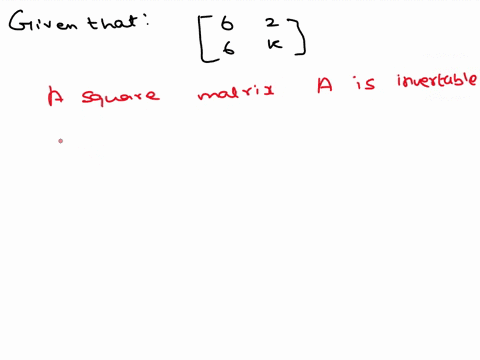 Given that: [6 2
6 k]
A square matrix A is invertable